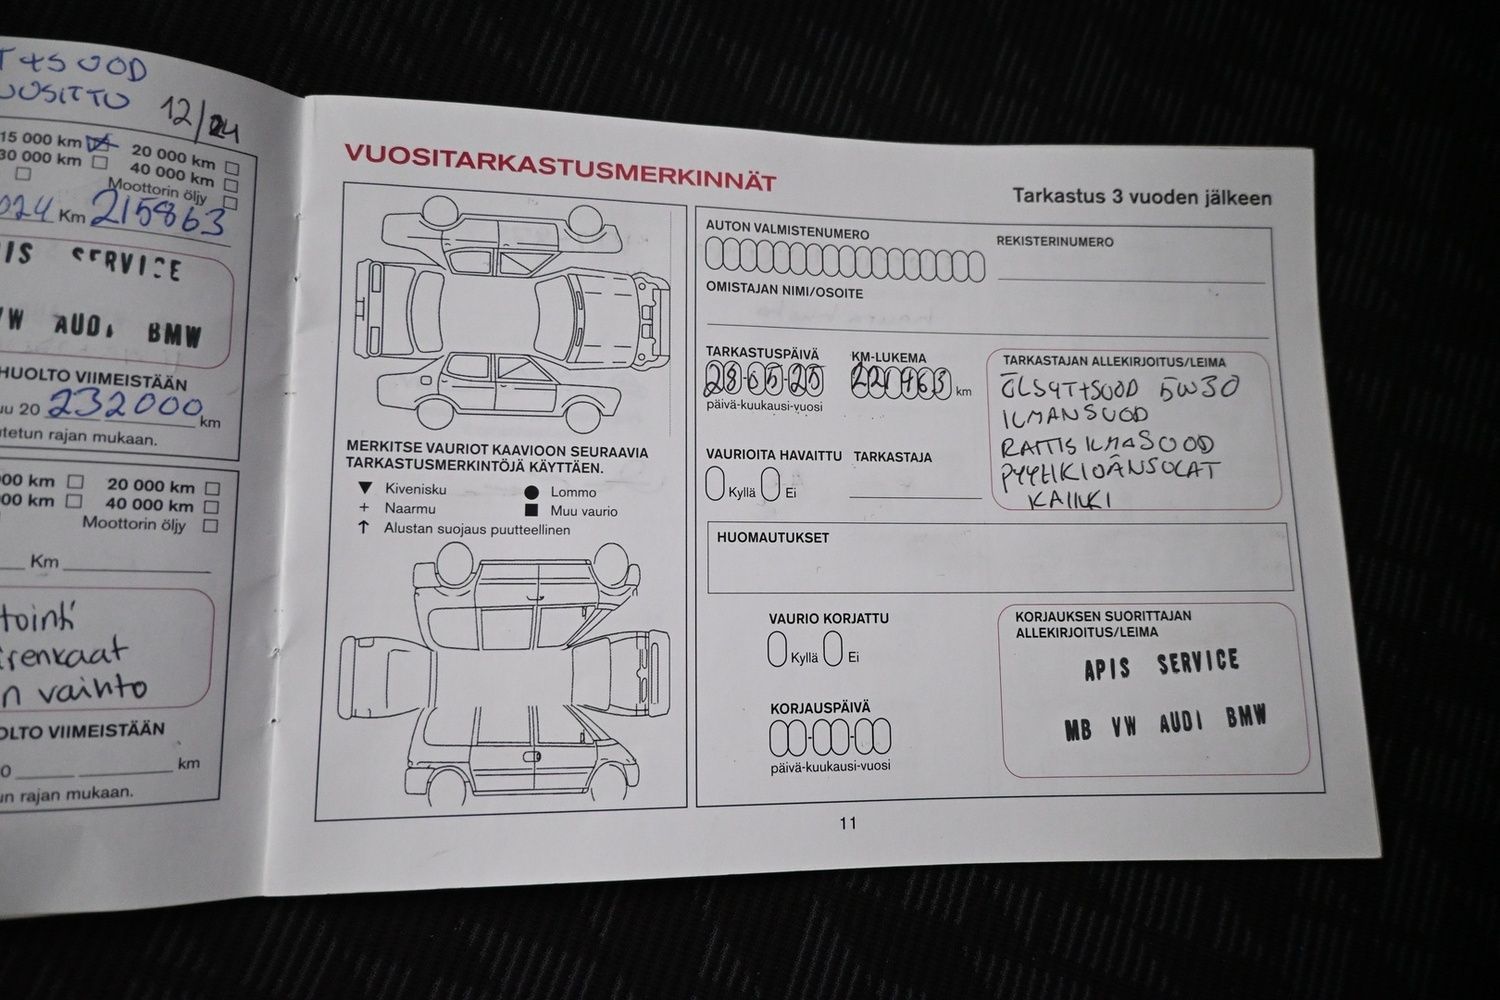 T+SUOD
UOSITTO 12/24
15 000 km 20 000 km
30 000 km 40 000 km
Moottorin öljy
024 Km 215863
IS SERVICE
VW AUDI BMW
HUOLTO VIIMEISTÄÄN
uu 20 232000 km
tetun rajan mukaan.
000 km 20 000 km
000 km 40 000 km
Moottorin öljy
Km
tointi
irenkaat
n vaihto
OLTO VIIMEISTÄÄN
0 km
un rajan mukaan.
VUOSITARKASTUSMERKINNÄT
Tarkastus 3 vuoden jälkeen
MERKITSE VAURIOT KAAVIOON SEURAAVIA
TARKASTUSMERKINTÖJÄ KÄYTTÄEN.
▼ Kivenisku ● Lommo
+ Naarmu ■ Muu vaurio
↑ Alustan suojaus puutteellinen
AUTON VALMISTENUMERO
REKISTERINUMERO
OMISTAJAN NIMI/OSOITE
TARKASTUSPÄIVÄ KM-LUKEMA
28-05-25 221463 km
päivä-kuukausi-vuosi
TARKASTAJAN ALLEKIRJOITUS/LEIMA
ÖLJYT+SUOD 5W30
ILMANSUOD
RAITISILMASUOD
PYYHKIJÄNSULAT
KAIKKI
VAURIOITA HAVAITTU TARKASTAJA
Kyllä Ei
HUOMAUTUKSET
VAURIO KORJATTU
Kyllä Ei
KORJAUSPÄIVÄ
päivä-kuukausi-vuosi
KORJAUKSEN SUORITTAJAN
ALLEKIRJOITUS/LEIMA
APIS SERVICE
MB VW AUDI BMW
11